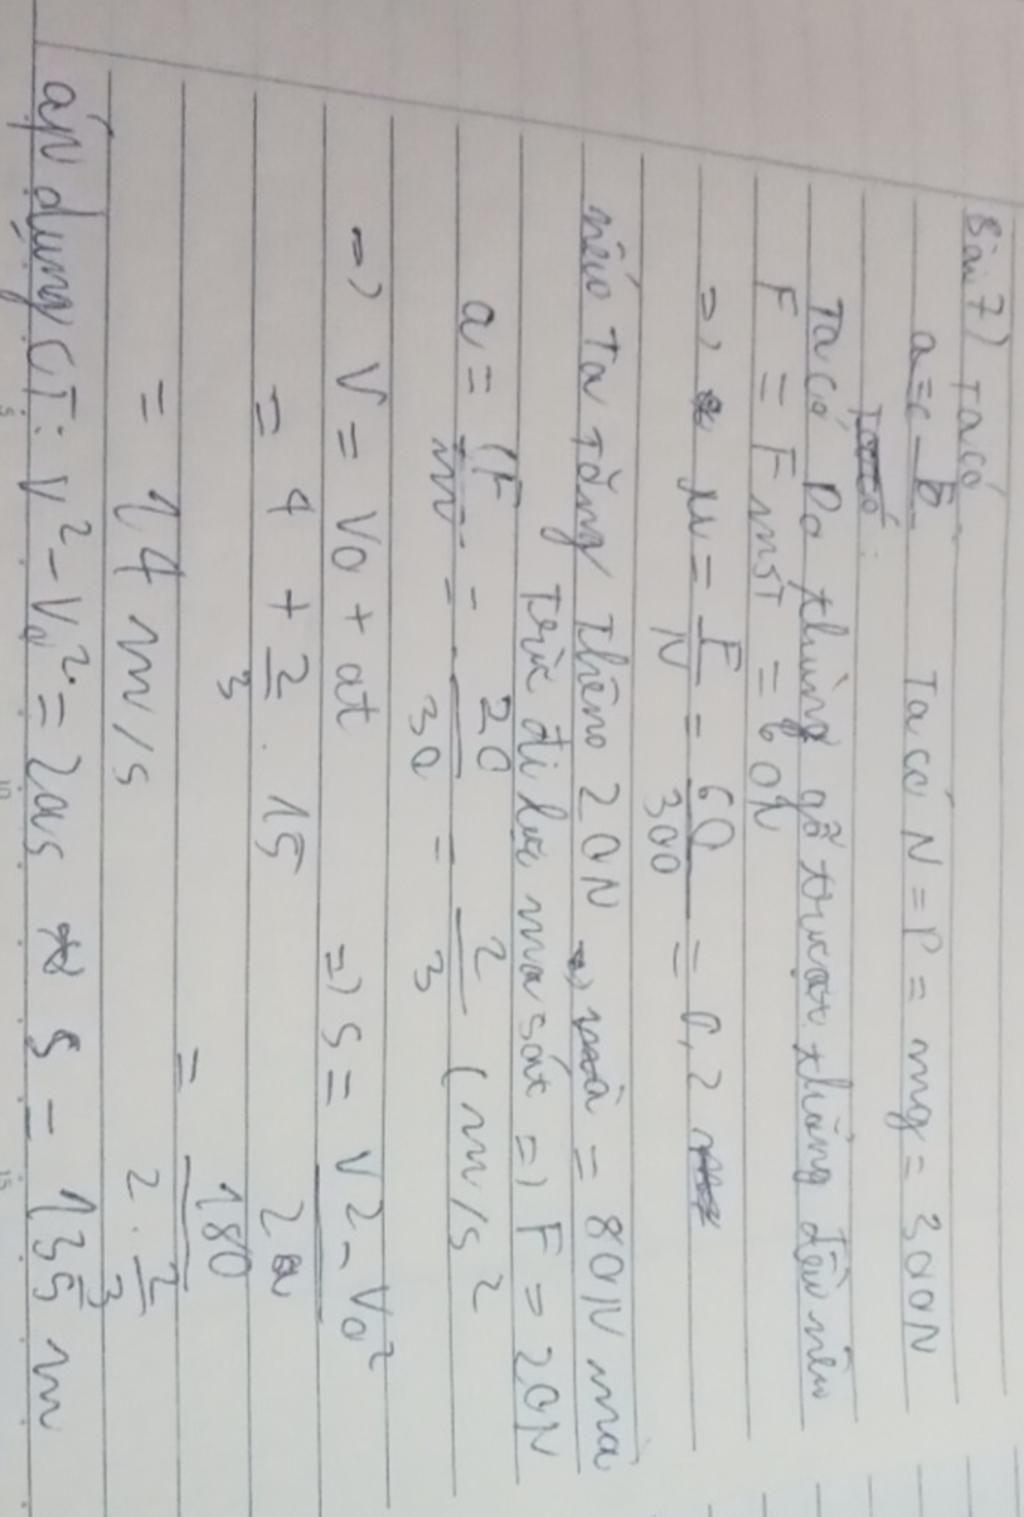 Bài 7) Ta có
Ta có N = P = mg = 300N
Ta có Do thùng gỗ trượt thẳng đều nên
F = Fmst = 60N
=> μ = F/N = 60/300 = 0,2
nếu Ta tăng thêm 20N => = 80N mà
trừ đi lực ma sát => F = 20N
a = F/m = 20/30 = 2/3 (m/s²
=> V = V0 + at
= 4 + 2/3 . 15
= 14 m/s
=> S = V2 - V0² / 2a
= 180 / 2 . 2/3
áp dụng CT: V² - V0² = 2as S = 135 m